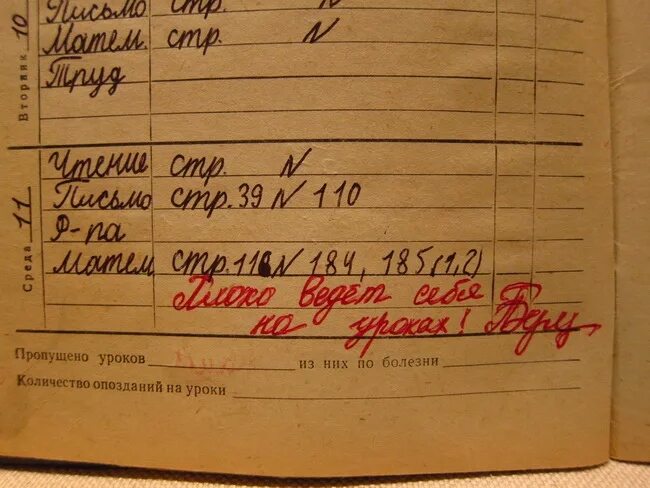 Письмо стр. N
Вторник 10
Матем. стр. N
Труд
Среда 11
Чтение стр. N
Письмо стр. 39 N 110
Ф-ра
Матем стр. 116 N 184, 185 (1,2)
Плохо ведёт себя
на уроках!
Пропущено уроков из них по болезни
Количество опозданий на уроки